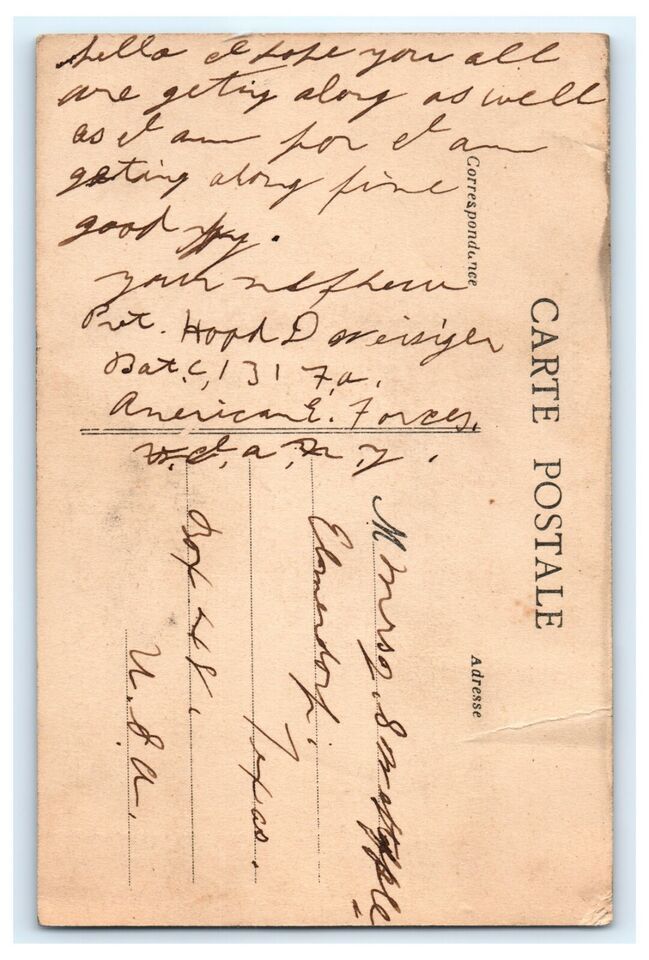 hello I hope you all
are geting along as well
as I am for I am
getting along fine
good by.
your nephew
Pvt. Hood D Weisiger
Bat. C, 131 F.a.
American E. Forces,
Correspondance
CARTE POSTALE
Adresse
M
Elmendorf.
Texas.
Box 48.
U.S.A.